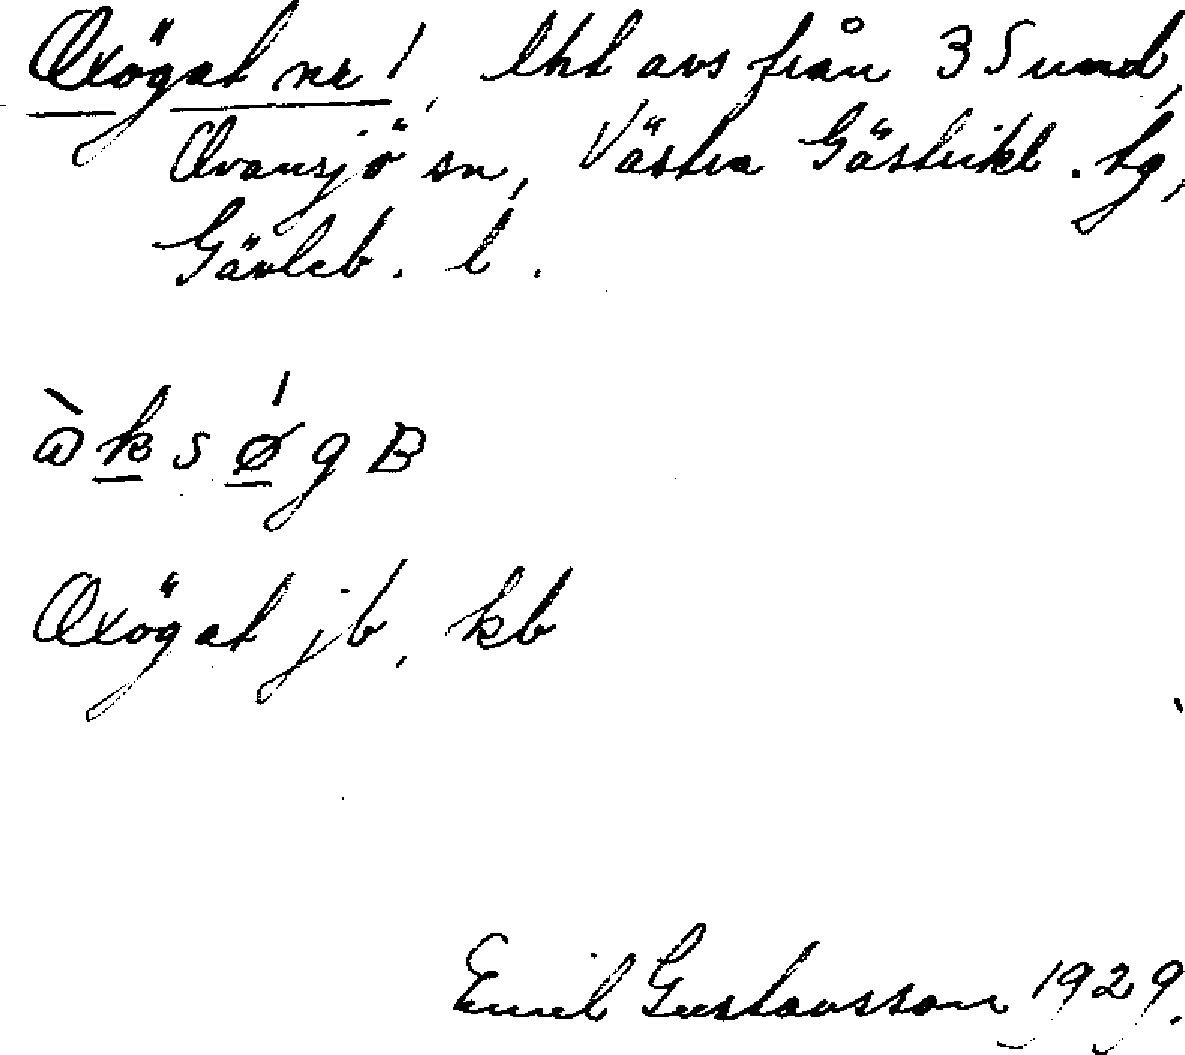 Oxögat nr 1, lht avs från 3 Sund,
Ovansjö sn, Västra Gästrikl. tg,
Gävleb. l.
Oxögat jb, kb
Emil Gustavsson 1929.